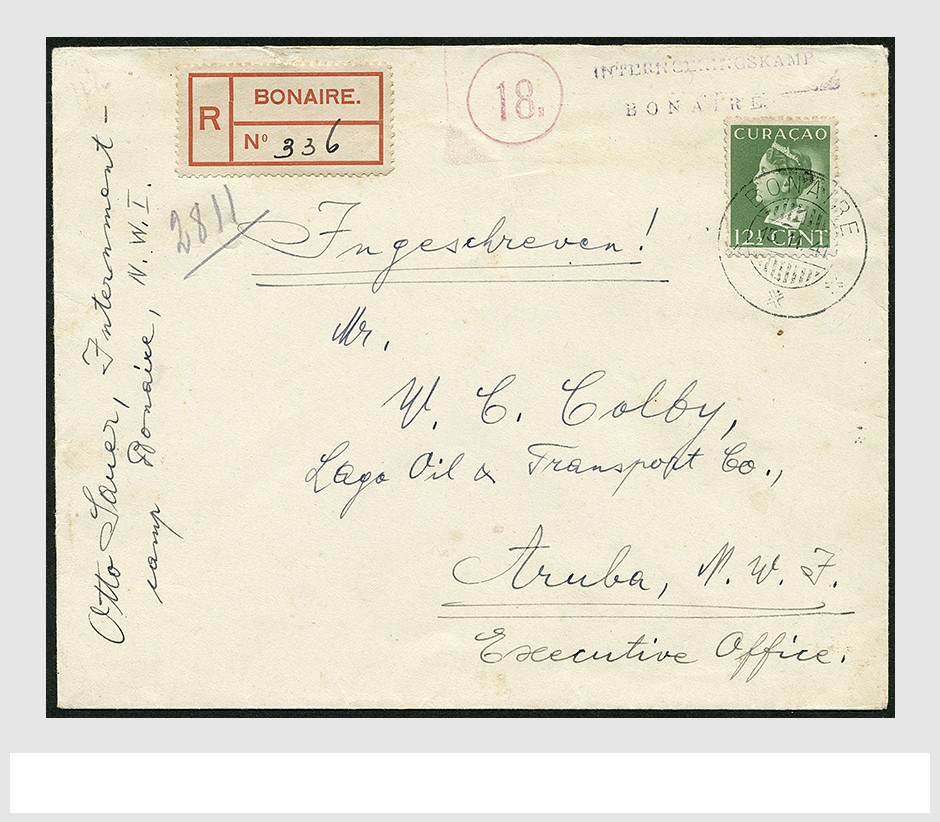 R
BONAIRE.
Nº 336
18.
INTERNEERINGSKAMP
BONAIRE.
CURAÇAO
12½ CENT
BONAIRE
2811
Ingeschreven!
Mr.
W. C. Colby,
Lago Oil & Transport Co.,
Aruba, N. W. I.
Executive Office.
Otto Sauer, Internment-
camp Bonaire, N. W. I.